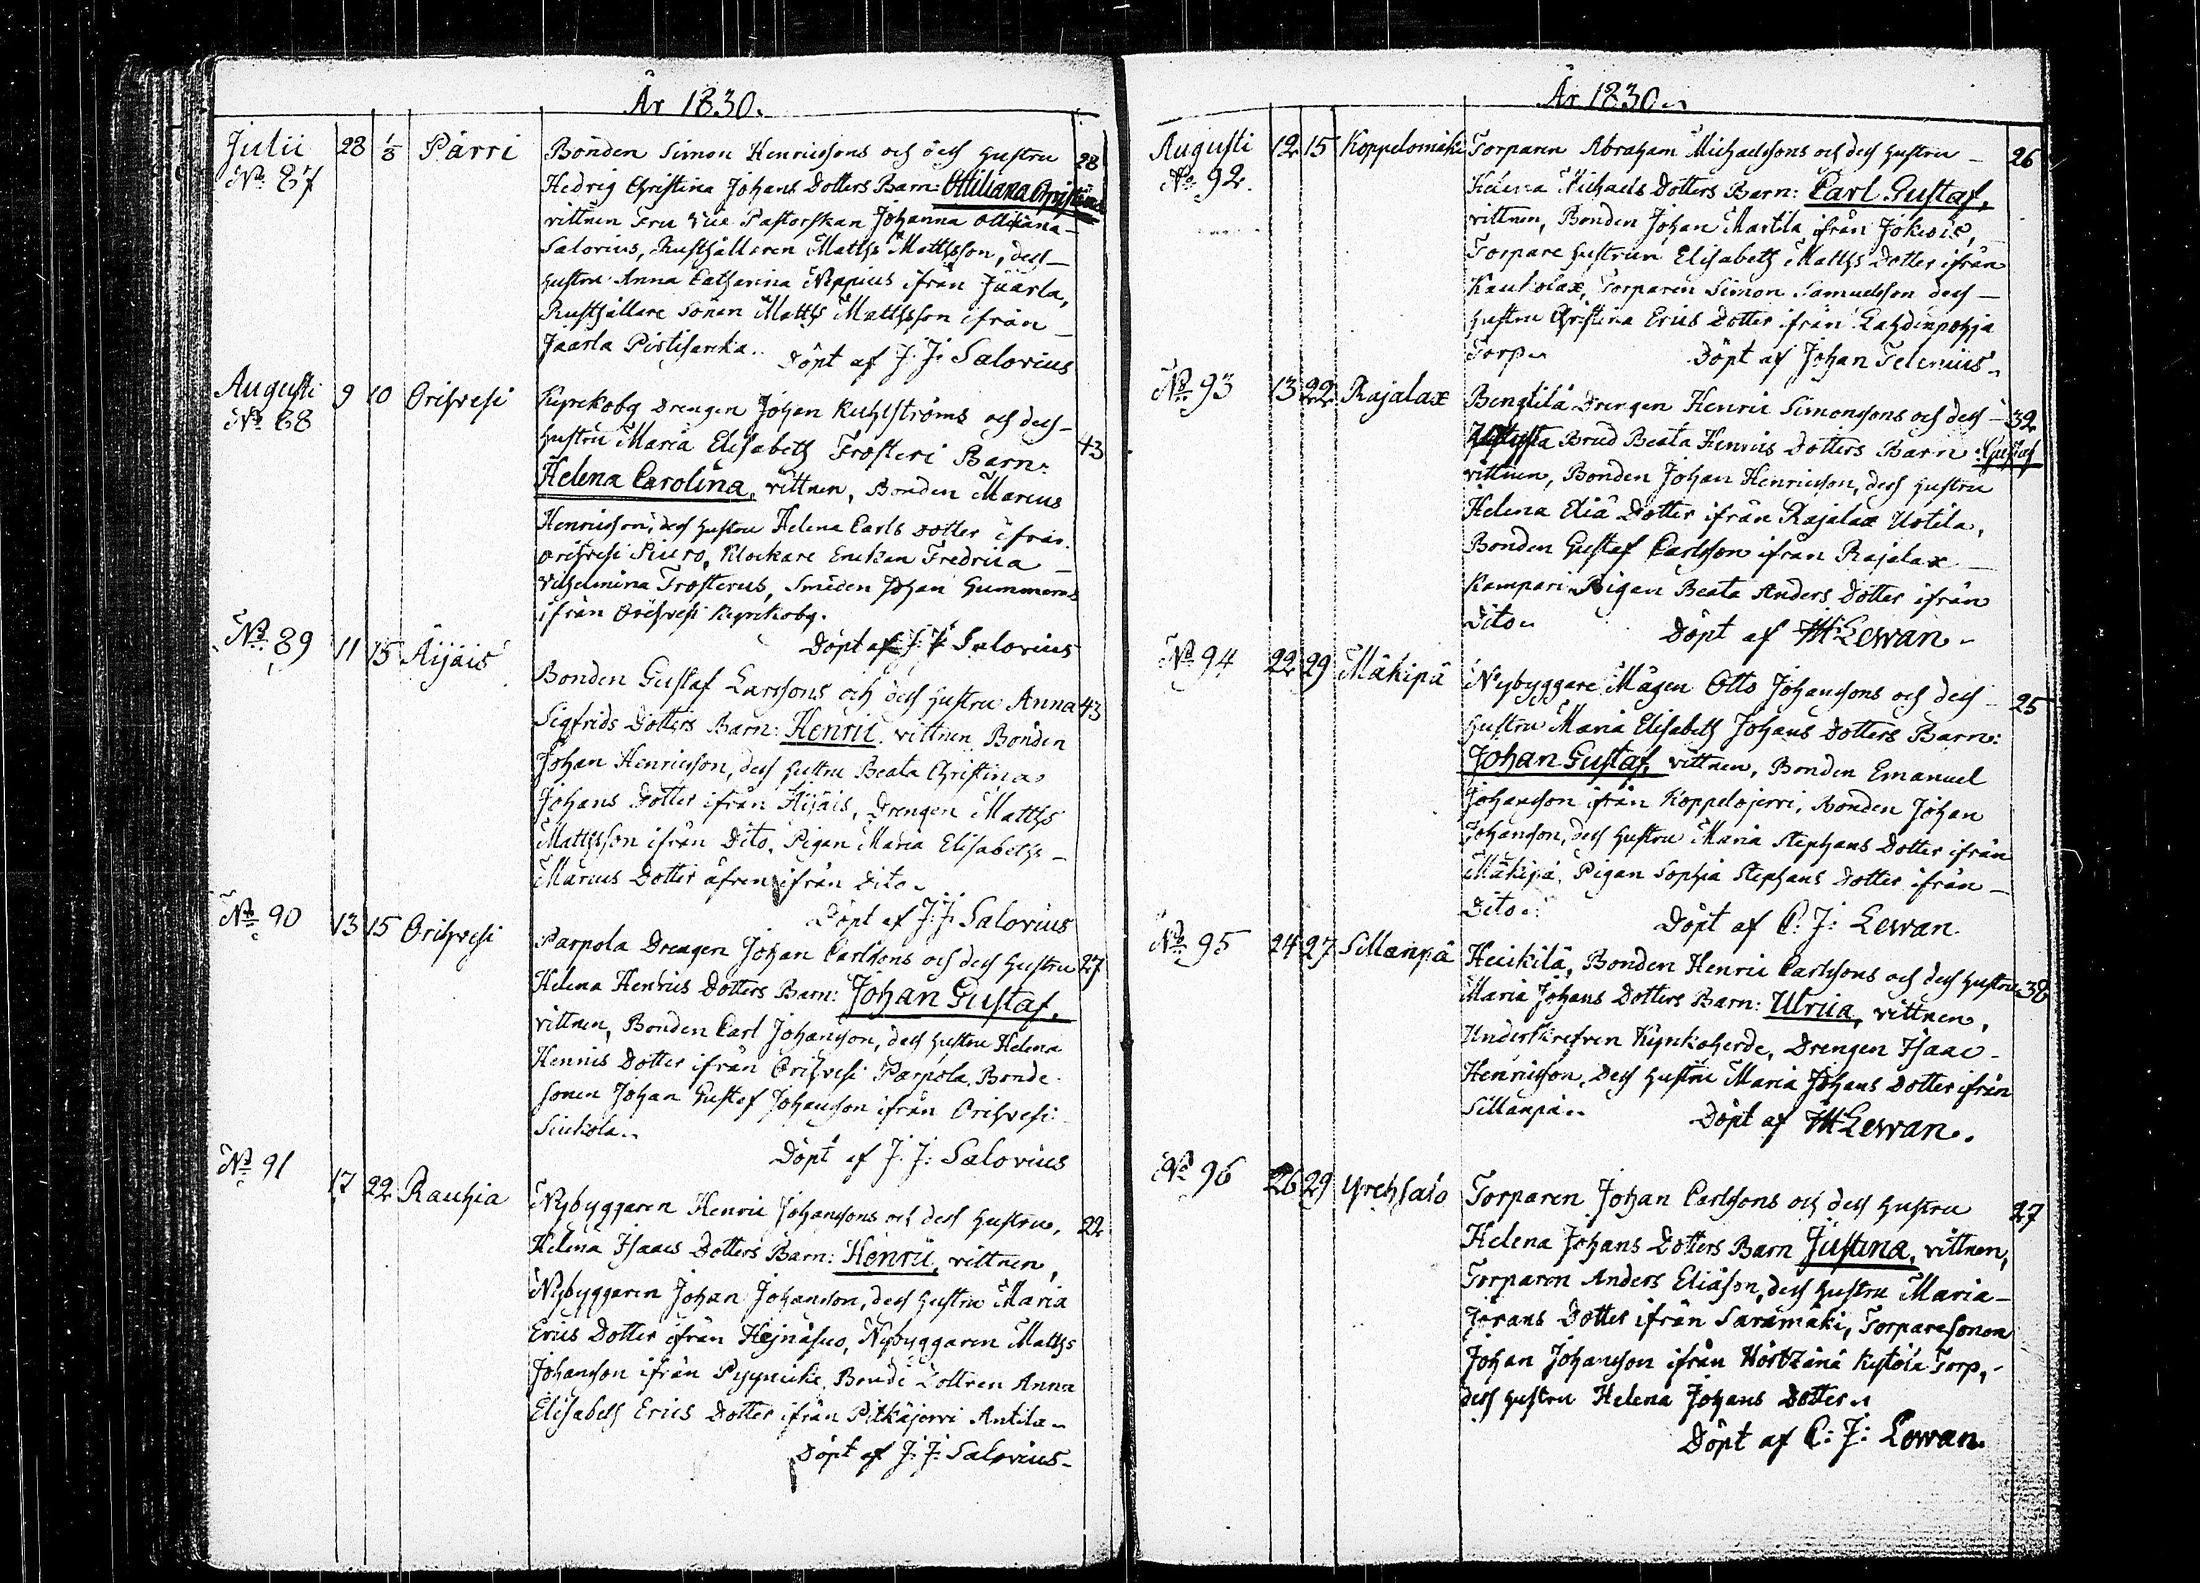 År 1830.
Julii 28 1/8 Pärri Bonden Simon Henricssons och dess hustru 28
No 87 Hedvig Christina Johans Dotters Barn: Ottiliana Christina
vittnen Fru Vice Pastorskan Johanna Ottiliana
Salovius, Rusthållaren Matths Matthsson, dess
hustru Anna Catharina Neppius ifrån Jäärla,
Rusthållare Sonen Matths Matthsson ifrån
Jäärla Pirtisarka. Döpt af J. J: Salovius
Augusti 9 10 Orisvesi Kyrckoby Drengen Johan Kuhlströms och dess
No 88 hustru Maria Elisabeth Frosteri Barn: 43
Helena Carolina, vittnen, Bonden Marcus
Henricsson, dess hustru Helena Carls Dotter ifrån
Orisvesi Siuro, Klockare Enckan Fredrica
Vilhelmina Frosterus, Smeden Johan Gummerus
ifrån Orisvesi Kyrckoby.
Döpt af J: J: Salovius
No 89 11 15 Äijäis Bonden Gustaf Larssons och dess hustru Anna 43
Sigfrids Dotters Barn: Henric, vittnen Bonden
Johan Henricsson, dess hustru Beata Christina
Johans Dotter ifrån Äijäis, Drengen Matths
Matthsson ifrån Dito, Pigan Maria Elisabeths
Marcus Dotter äfven ifrån Dito.
Döpt af J: J: Salovius
No 90 13 15 Orisvesi Parpola Drengen Johan Carlssons och dess hustru 27
Helena Henrics Dotters Barn: Johan Gustaf,
vittnen, Bonden Carl Johansson, dess hustru Helena
Henrics Dotter ifrån Orisvesi Parpola, Bonde
sonen Johan Gustaf Johansson ifrån Orisvesi
Siukola.
Döpt af J. J: Salovius
No 91 17 22 Rauhia Nybyggaren Henric Johanssons och dess hustru, 22
Helena Isaacs Dotters Barn: Henric, vittnen,
Nybyggaren Johan Johansson, dess hustru Maria
Erics Dotter ifrån Hejnäsuo, Nybyggaren Matths
Johansson ifrån Pyynicke, Bonde Dottren Anna
Elisabeth Erics Dotter ifrån Pitkäjervi Antila
Döpt af J: J: Salovius
År 1830
Augusti 12 15 Koppelomäki Torparen Abraham Michaelssons och dess hustru 26
No 92. Michaels Dotters Barn: Carl Gustaf,
vittnen, Bonden Johan Martila ifrån Jokiois,
Torpare hustrun Elisabeth Matths Dotter ifrån
Kaukolax, Torparen Simon Samuelsson dess
hustru Christina Erics Dotter ifrån Lahdenpohja
Torp. Döpt af Johan Telenius
No 93 13 22 Rajalax Bengtilä Drengen Henric Simonssons och dess 32
Brud Beata Henrics Dotters Barn: Gustaf
vittnen, Bonden Johan Henricsson, dess hustru
Helena Eliæ Dotter ifrån Rajalax Uotila,
Bonden Gustaf Carlsson ifrån Rajalax
Kampari Pigan Beata Anders Dotter ifrån
Dito. Döpt af M: Lewan
No 94 22 29 Mäkipä Nybyggare Mågen Otto Johanssons och dess 25
hustru Maria Elisabeth Johans Dotters Barn:
Johan Gustaf, vittnen, Bonden Emanuel
Johansson ifrån Koppelojerri, Bonden Johan
Johansson, dess hustru Maria Stephans Dotter ifrån
Mäkipä, Pigan Sophia Stephans Dotter ifrån
Dito. Döpt af C: J: Lewan
No 95 24 27 Sillanpä Heickilä, Bonden Henric Carlssons och dess hustru 38
Maria Johans Dotters Barn: Ulrica, vittnen,
Underskrefven Kyrckoherde, Drengen Isaac
Henricsson, Dess hustru Maria Johans Dotter ifrån
Sillanpä. Döpt af M: Lewan.
No 96 26 29 Yrehsalo Torparen Johan Carlssons och dess hustru 27
Helena Johans Dotters Barn Justina, vittnen,
Torparen Anders Eliæson, dess hustru Maria
Jörans Dotter ifrån Saramäki, Torparesonen
Johan Johansson ifrån Kystölä Torp,
dess hustru Helena Johans Dotter
Döpt af C: J: Lewan.